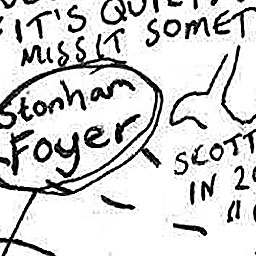 IT'S QUIET
MISS IT SOMET
Stonham
Foyer
SCOTT
IN 20
"I